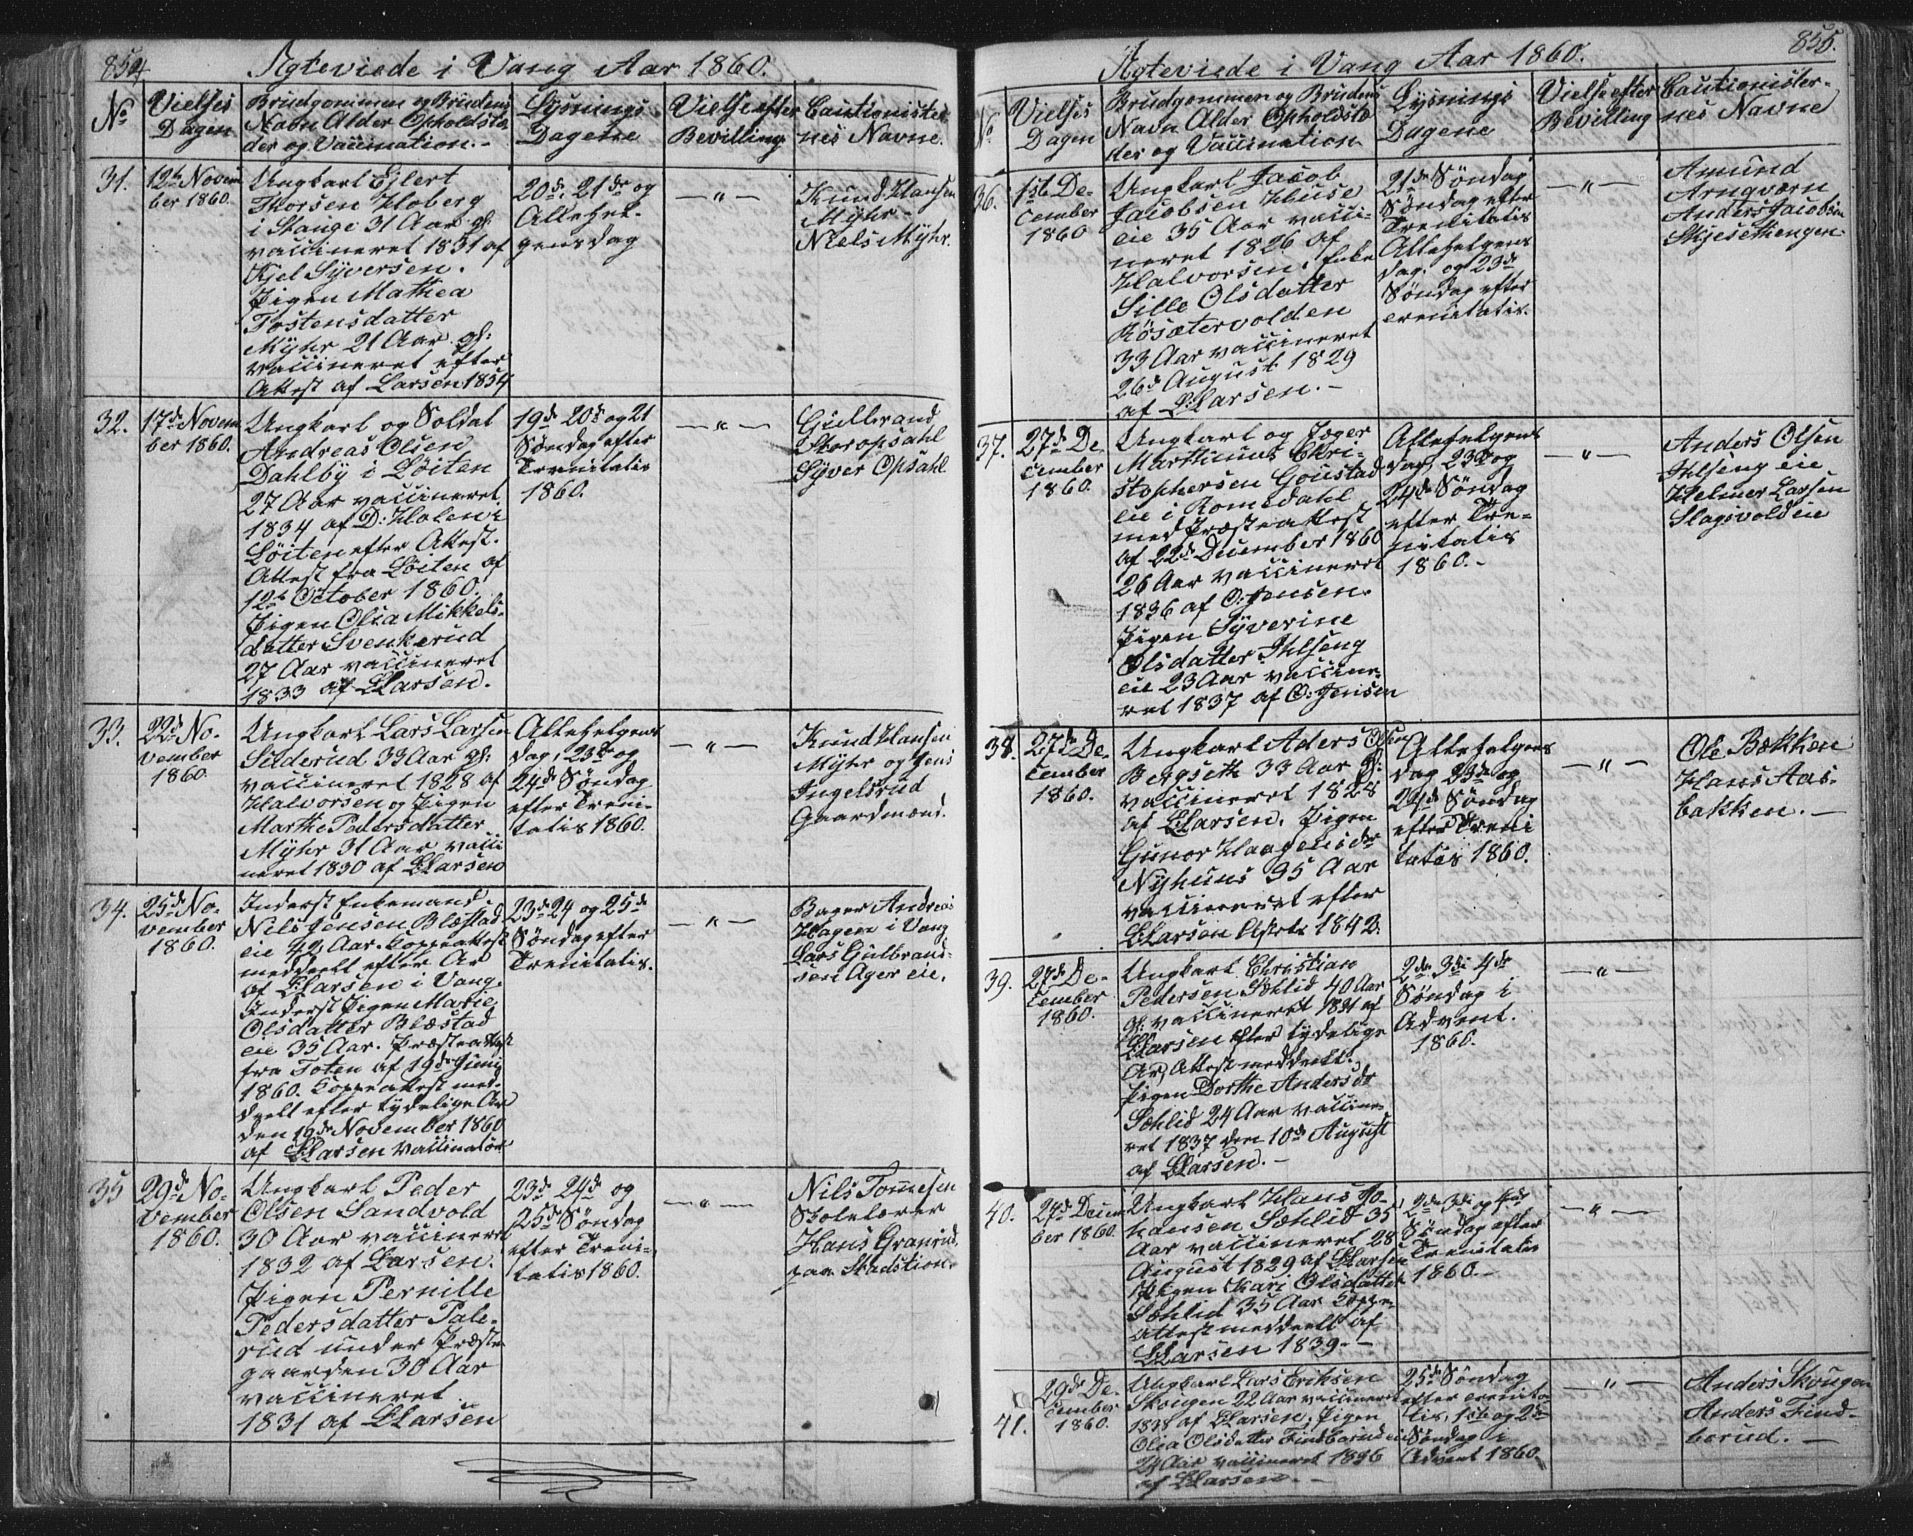 854
Ægteviede i Vang Aar 1860.
No
Vielses
Dagen
Brudgommen og Brudens
Navn Alder Opholdste
der og Vaccination.-
Lysnings
Dagene
Vielse efter
Bevilling
Cautionister
nes Navne.
31.
12te Novem
ber 1860.
Ungkarl Ejlert
Thorsen Hoberg
i Stange 31 Aar gl:
vaccineret 1831 af
Kjel Syversen.
Pigen Mathea
Tostensdatter
Myhr 21 Aar gl:
vaccineret efter
Attest af Larsen 1854
20de 21de og
Allehel-
gensdag
—"—
Knud Hansen
Myhr -
Niels Myhr.
32.
17de Novem
ber 1860.
Ungkarl og Soldat
Andreas Olsen
Dahlby i Løiten
27 Aar vaccineret
1834 af D: Holen i
Løiten efter Attest.
Attest fra Løiten af
12te October 1860.
Pigen Olea Mikkels-
datter Svenkerud
27 Aar vaccineret
1833 af LLarsen.
19de 20de og 21
Søndag efter
Trenitatis
1860.
—"—
Gulbrand
Storopsahl
Syver Opsahl
33.
22de No-
vember
1860.
Ungkarl Lars Larsen
Suderud 33 Aar gl:
vaccineret 1828 af
Halvorsen og Pigen
Marthe Pedersdatter
Myhr 31 Aar vacci
neret 1830 af LLarsen
Allehelgens
dag, 23de og
24de Søndag
efter Treni-
tatis 1860.
—"—
Knud Hansen
Myhr og Jens
Ingelsrud
Gaardmænd.
34.
25de No-
vember
1860.
Inderst Enkemand
Nils Jensen Blæstad
eie 42 Aar. Koppeattest
meddeelt efter Ar
af LLarsen i Vang.
Inderst Pigen Marie
Olsdatter Blæstad
eie 35 Aar. Præsteattest
fra Toten af 19de Juni
1860. Koppeattest med-
deelt efter tydelige Ar
den 19de November 1860
af LLarsen Vaccinatør
23de 24 og 25de
Søndag efter
Trenitatis.
—"—
Bager Andreas
Hagen i Vang
Lars Gulbrand-
sen Ager eie.
35
29de No-
vember
1860.
Ungkarl Peder
Olsen Sandvold
30 Aar vaccineret
1832 af Larsen.
Pigen Pernille
Pedersdatter Pale-
rud under Præste
gaarden 30 Aar
vaccineret
1831 af LLarsen
23de 24de og
25de Søndag
efter Treni-
tatis 1860.
—"—
Nils Tommesen
Skolelærer
Hans Granrud
paa Stadstion.
855.
Ægteviede i Vang Aar 1860.
No
Vielses
Dagen
Brudgommen og Brudens
Navn Alder Opholdste
der og Vaccination
Lysnings
Dagene
Vielse efter
Bevilling
Cautionister-
nes Navne
36.
1ste De-
cember
1860
Ungkarl Jacob
Jacobsen Huse
eie 35 Aar vacci-
neret 1826 af
Halvorsen. Enke
Sille Olsdatter
Røsætervolden
33 Aar vaccineret
26de August 1829
af LLarsen.-
21de Søndag
Søndag efter
Trenitatis
Allehelgens
dag. og 23de
Søndag efter
Trenitatis.
—"—
Amund
Arnqværn
Anders Jacobsen
Skjesethengen.
37.
27de De-
cember
1860.
Ungkarl og Jæger
Marthinus Chri-
stophersen Goustad
eie i Romsdahl
med Præsteattest
af 22de December 1860
26 Aar vaccineret
1836 af O: Jensen.
Pigen Syverine
Olsdatter Ihlseng
eie 23 Aar vaccine-
ret 1837 af O: Jensen
Allehelgens
dag, 23de og
24de Søndag
efter Tre-
nitatis
1860.-
—"—
Anders Olsen
Ihlseng eie
Helmer Larsen
Slagsvold eie
38.
27de De-
cember
1860.
Ungkarl Aders Olsen
Bergseth 33 Aar gl:
vaccineret 1828
af LLarsen. Pigen
Gunor Haagensdr
Nyhuus 35 Aar
vaccineret efter
LLarsen Attest 1842.
Allehelgens
dag 23de og
24de Søndag
efter Treni
tatis 1860.
—"—
Ole Bækken
Hans Aas-
bakken. —
39.
27de De-
cember
1860.
Ungkarl Christian
Pedersen Sæhlid 40 Aar
gl: vaccineret 1821 af
LLarsen efter tydelige
Ar, Attest meddeelt.
Pigen Dorthe Andersdr
Sæhlid 24 Aar vaccine-
ret 1837 den 10de August
af LLarsen.-
2den 3die 4de
Søndag i
Advent.
1860.
—"—
40.
27de Decem
ber 1860.
Ungkarl Hans Jo-
hansen Sæhlid 35
Aar vaccineret 28
August 1829 af LLarsen
Pigen Kari Olsdatter
Sæhlid 35 Aar Koppe
attest meddeelt af
LLarsen 1839.-
2den 3die og 4de
Søndag efter
Trenitatis
1860.-
—"—
41.
29de De-
cember
1860.
Ungkarl Lars Eriksen
Skougen 22 Aar vaccineret
1838 af LLarsen, Pigen
Olea Olsdatter Findberud eie
24 Aar vaccineret 1836
af LLarsen.-
25de Søndag
efter Trenita-
tis, 1ste og 2den
Søndag i
Advent 1860.
—"—
Anders Skougen
Anders Find-
berud. —